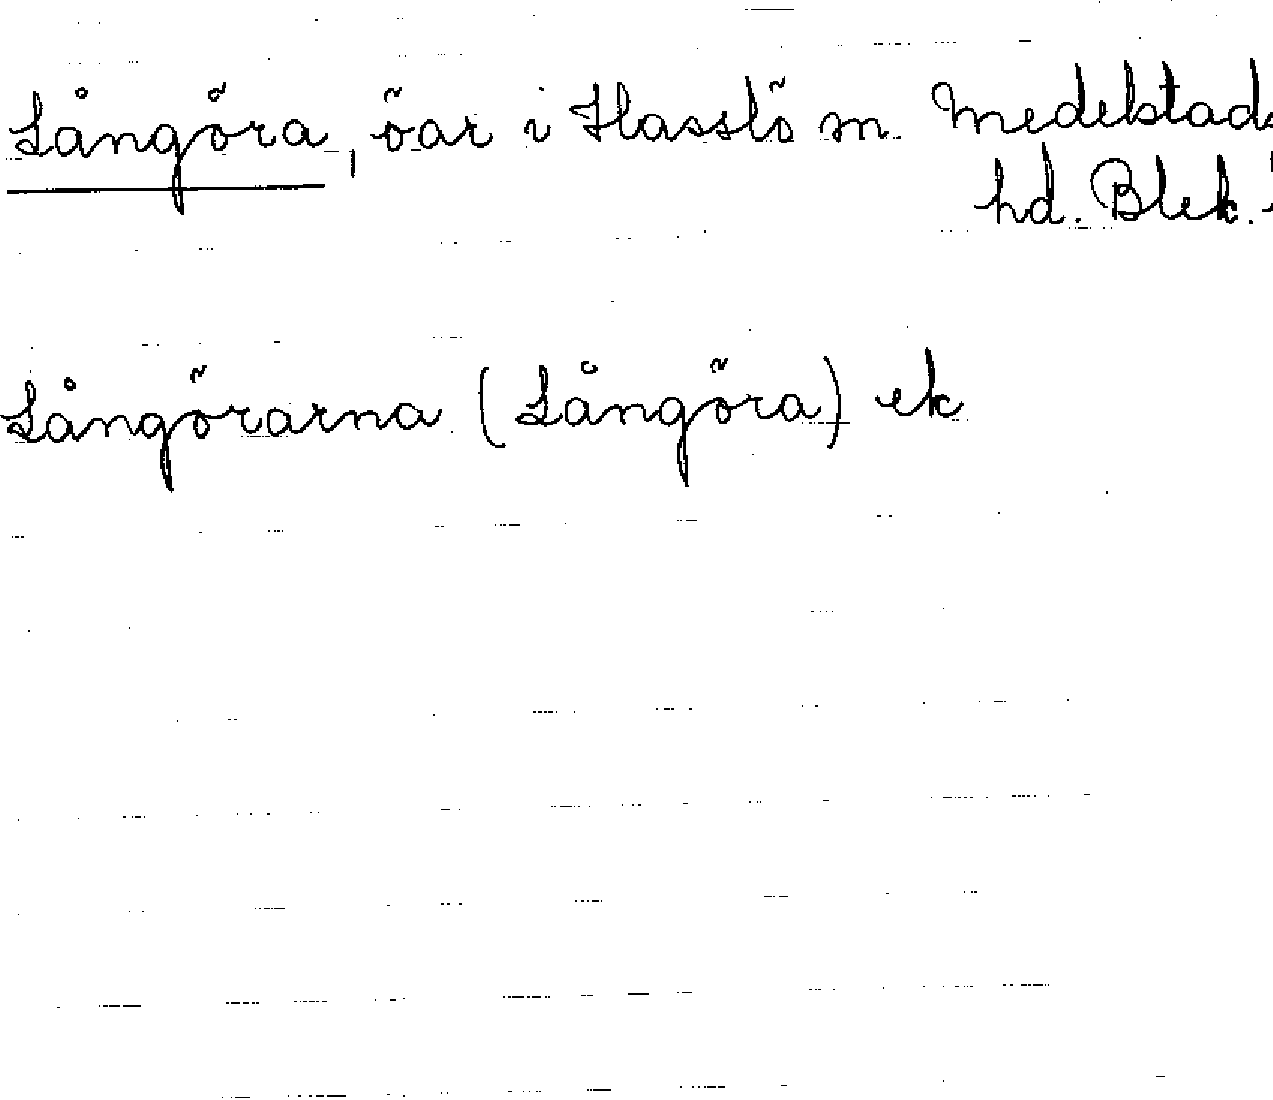 Långöra, öar i Hasslö sn. Medelstads
hd. Blek.
Långörarna (Långöra) ek